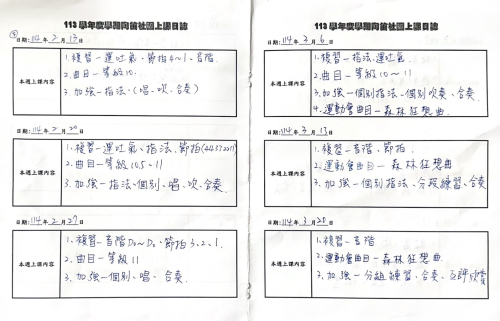 113 學年度學期陶笛社團上課日誌
日期:114 年 2 月 13 日
本週上課內容
1、複習-運吐氣、節拍4~1、音階
2、曲目-等級10.
3、加強-指法、(唱、吹、合奏)
日期:114 年 2 月 20 日
本週上課內容
1、複習-運吐氣、指法、節拍(44332211)
2、曲目-等級10.5~11
3、加強-指法、個別、唱、吹、合奏
日期:114 年 2 月 27 日
本週上課內容
1、複習-音階Do~Do、節拍3、2、1.
2、曲目-等級11
3、加強-個別、唱、合奏
113 學年度學期陶笛社團上課日誌
日期:114 年 3 月 6 日
本週上課內容
1、複習-指法、運吐氣
2、曲目-等級10~11
3、加強-個別指法、個別吹奏、合奏.
4、運動會曲目-森林狂想曲
日期:114 年 3 月 13 日
本週上課內容
1、複習-音階、節拍.
2、運動會曲目-森林狂想曲
3、加強-個別指法、分段練習、合奏
日期:114 年 3 月 20 日
本週上課內容
1、複習-音階
2、運動會曲目-森林狂想曲
3、加強-分組練習、合奏、互評欣賞